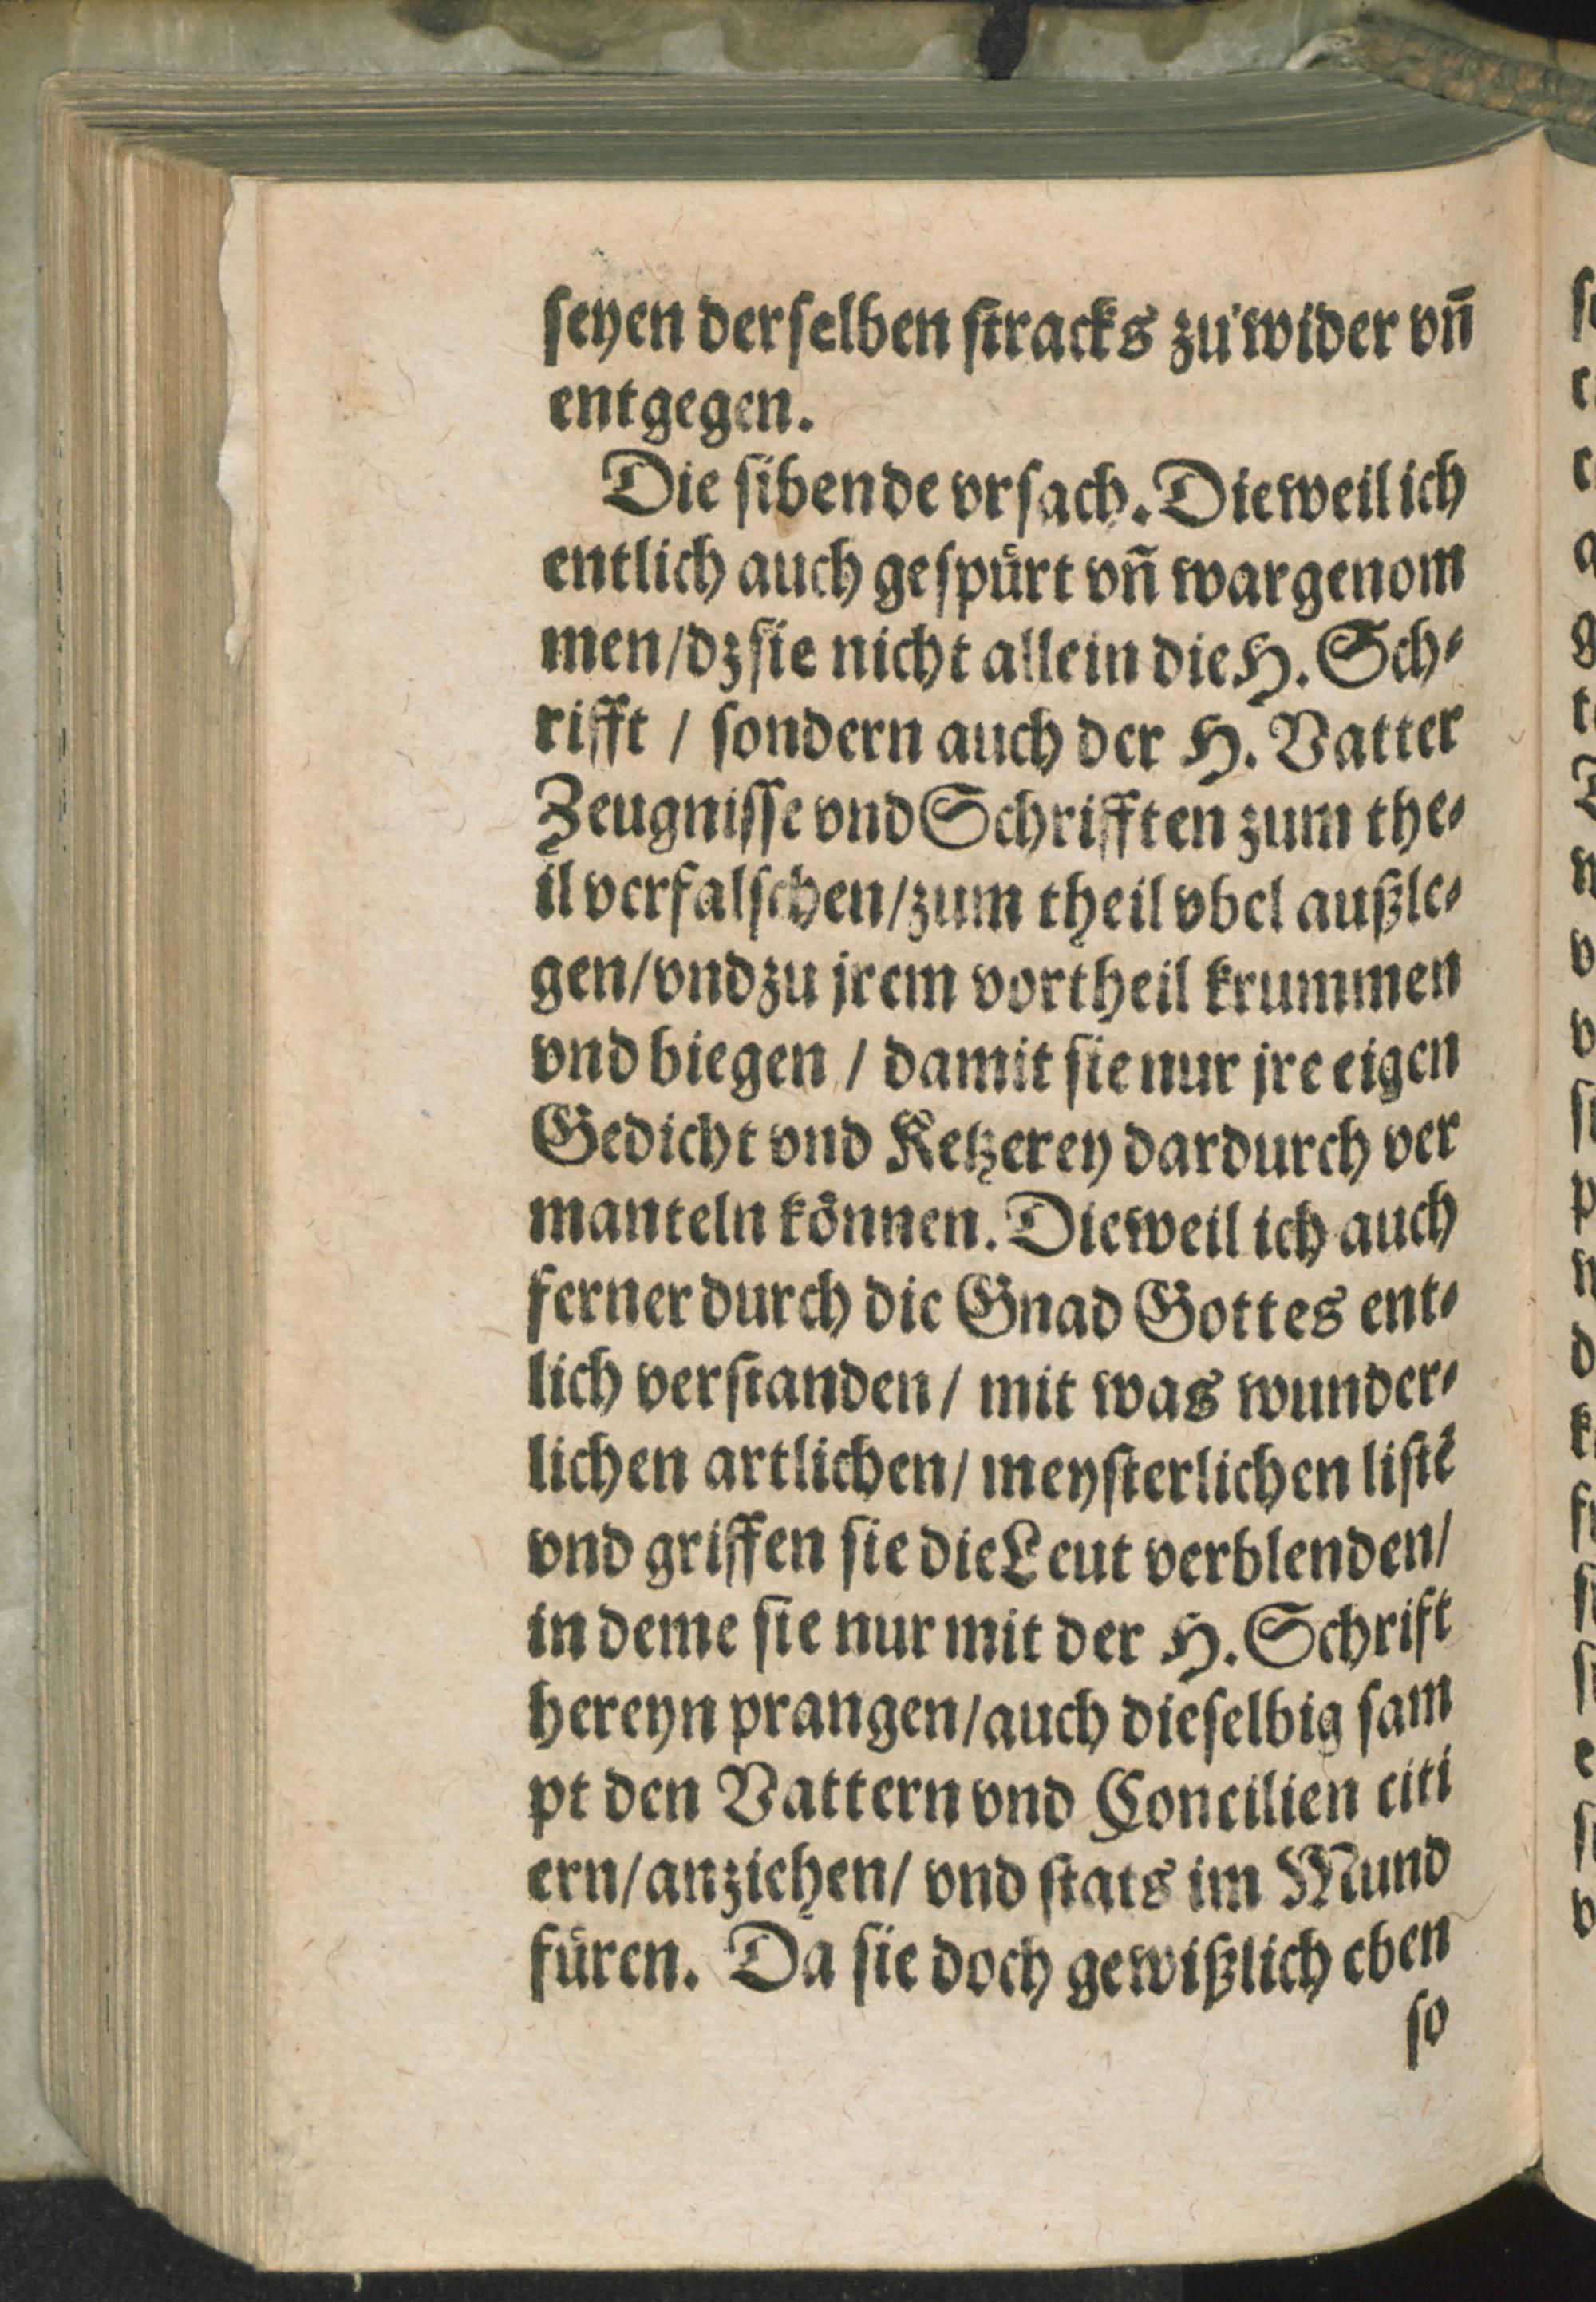 ſeyen derſelben ſtracks zu wider vñ
entgegen.
Die ſibende vrſach. Dieweil ich
entlich auch geſpuͤrt vñ wargenom
men/dz ſie nicht allein die H. Sch⸗
rifft / ſondern auch der H. Vatter
Zeugniſſe vnd Schrifften zum the⸗
il verfalſchen/zum theil vbel außle⸗
gen/vnd zu jrem vortheil krummen
vnd biegen / damit ſie nur jre eigen
Gedicht vnd Ketzerey dardurch ver
manteln koͤnnen. Dieweil ich auch
ferner durch die Gnad Gottes ent⸗
lich verſtanden / mit was wunder⸗
lichen artlichen/ meyſterlichen liſtẽ
vnd griffen ſie die Leut verblenden/
in deme ſie nur mit der H. Schrift
hereyn prangen/auch dieſelbig ſam
pt den Vattern vnd Concilien citi
ern/anziehen/ vnd ſtats im Mund
fuͤren. Da ſie doch gewißlich eben
ſo